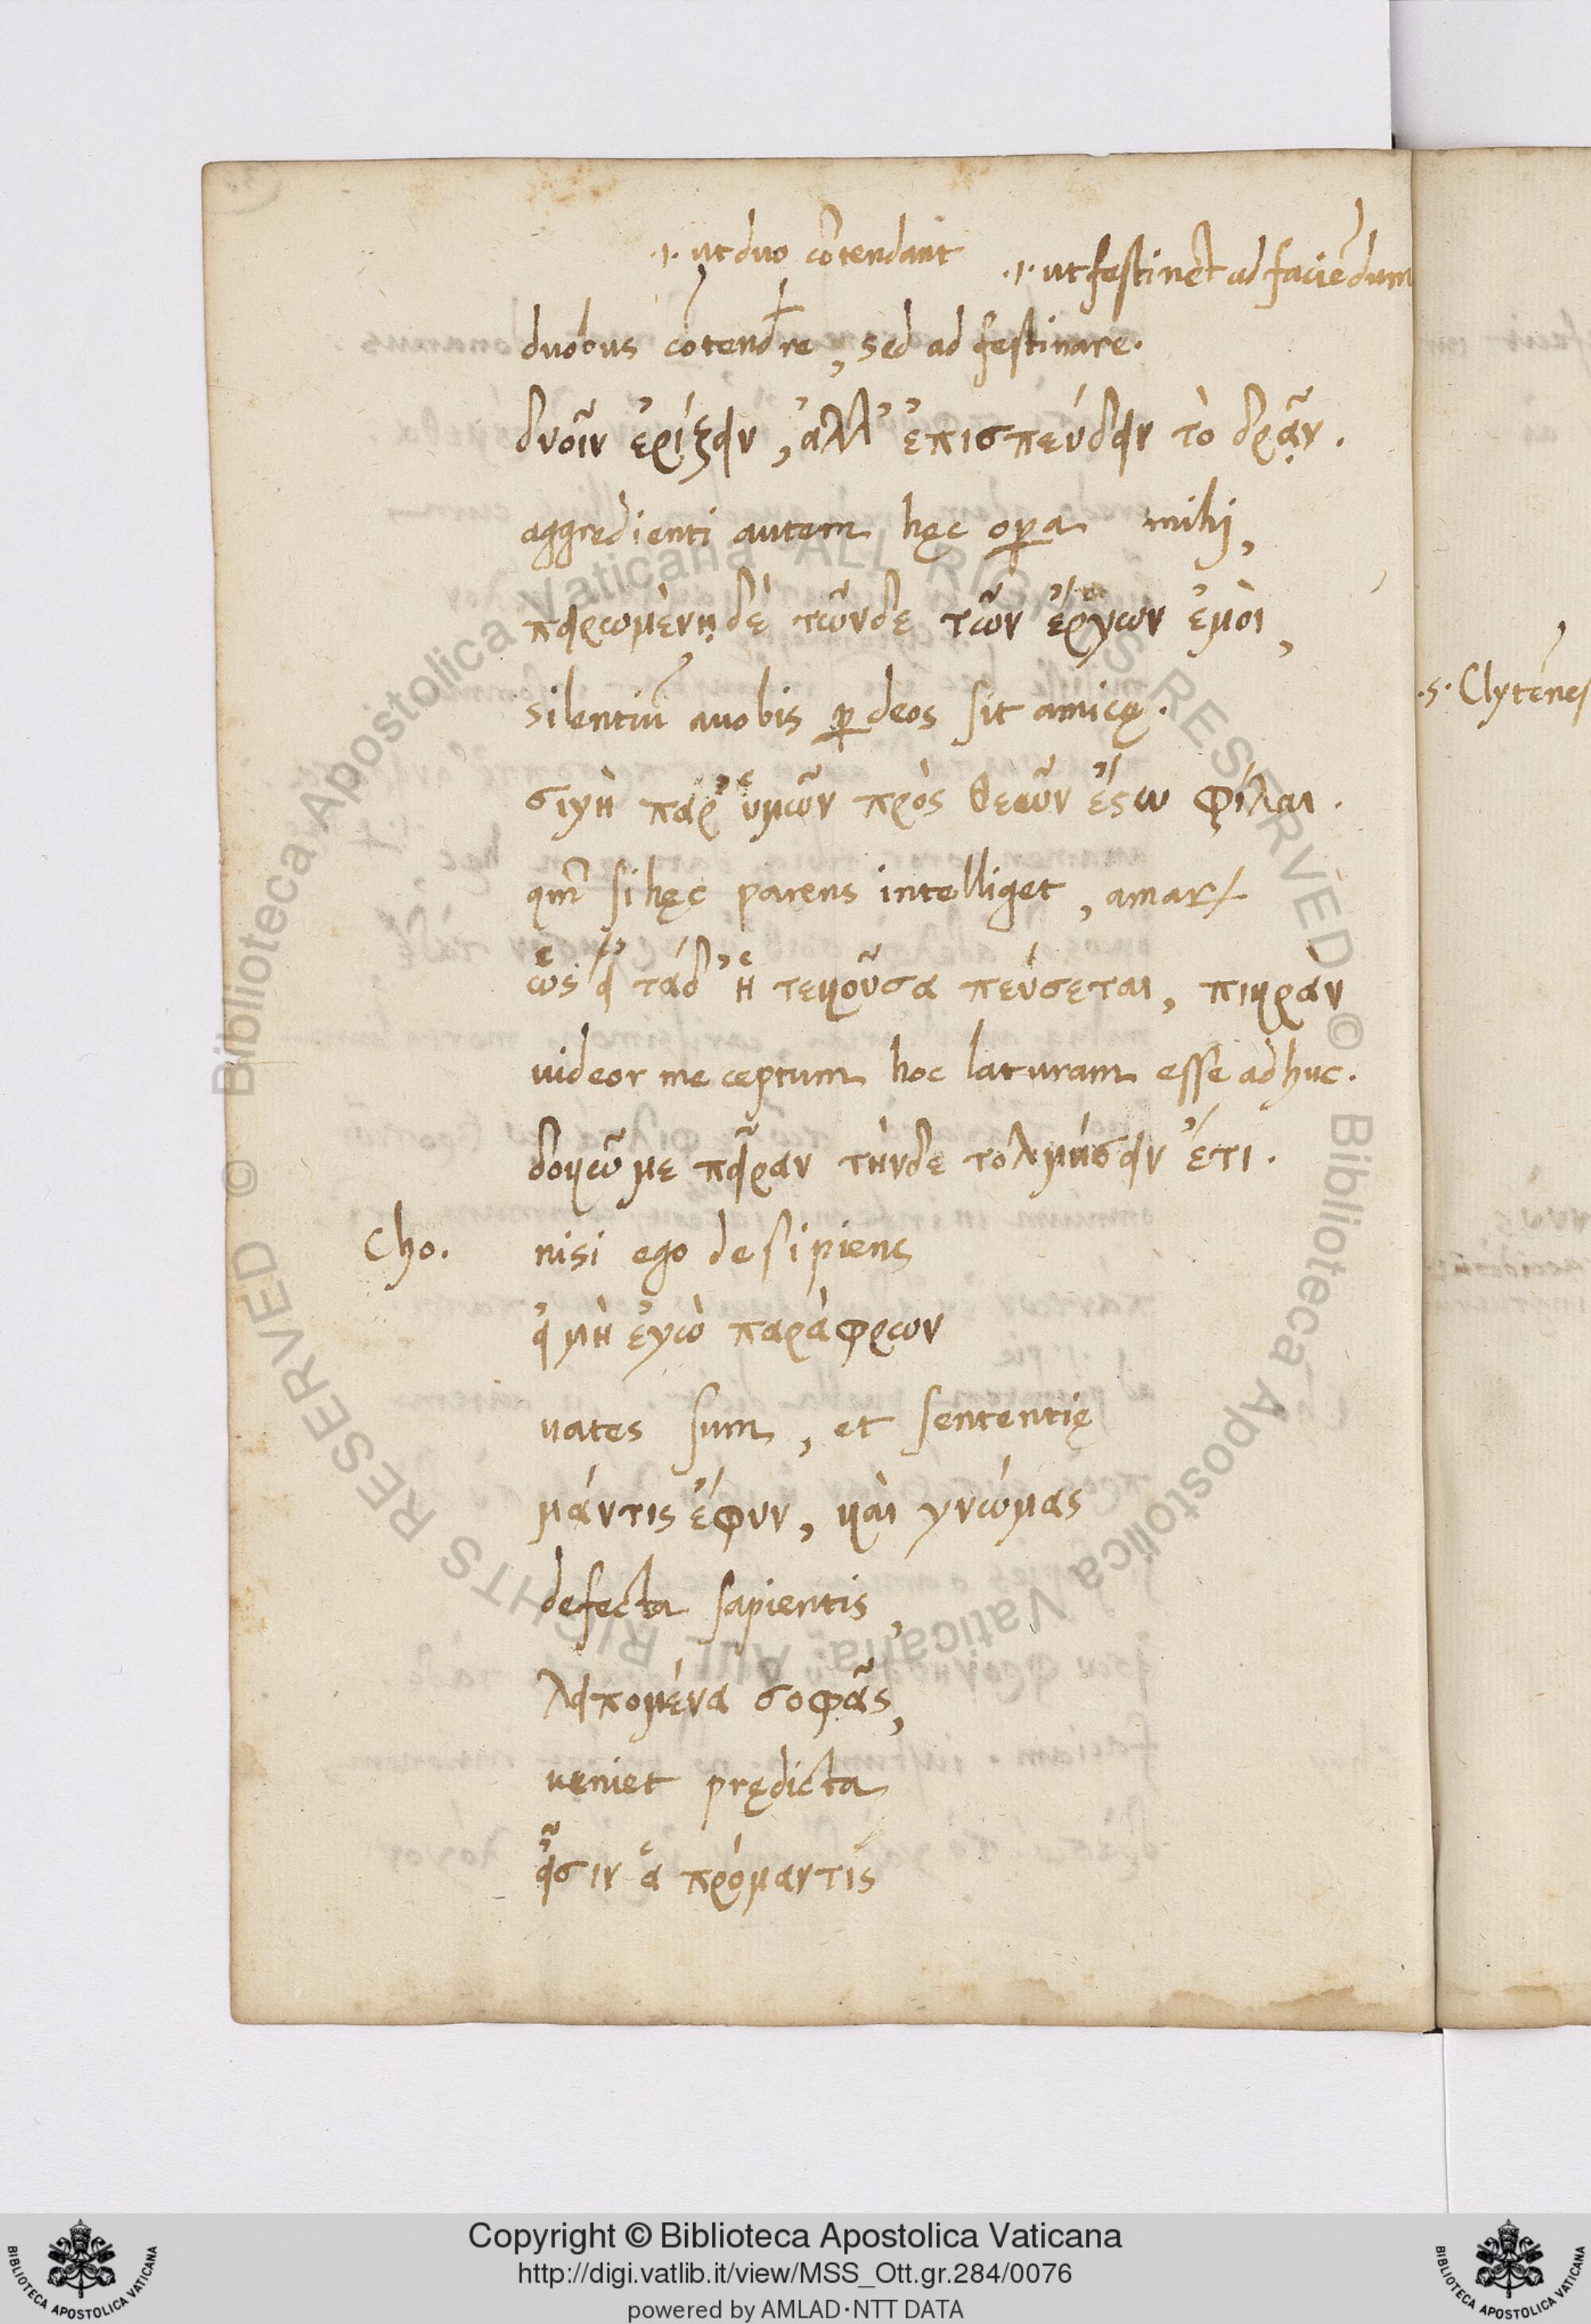 .i. ut duo cõtendant .i. ut festinẽt ad faciẽdum
duobus cõtendere, sed ad festinare.
δυοῖν ἐρίζειν, ἀλλ' ἐπισπεύδειν τὸ δρᾶν.
aggredienti autem hęc oꝑa mihi,
πειρωμένῃ δὲ τῶνδε τῶν ἔργων ἐμοὶ,
silentiũ a uobis ꝑ deos sit amicę.
σιγὴ παρ' ὑμῶν πρὸς θεῶν ἔστω φίλαι.
qm̃ si hęc parens intelliget,
ὡς εἰ τάδ' ἡ τεκοῦσα πεύσεται, πικρὰν
uideor me ceptum hoc laturam esse adhuc.
δοκῶ με πεῖραν τήνδε τολμήσειν ἔτι.
Cho. nisi ego desipiens
εἰ μὴ ἐγὼ παράφρων
uates sum, et sententię
μάντις ἔφυν, καὶ γνώμας
defecta sapientis,
λειπομένα σοφᾶς,
ueniet prędicta
εἶσιν ἁ πρόμαντις
.s. Clytẽnes
Copyright © Biblioteca Apostolica Vaticana
http://digi.vatlib.it/view/MSS_Ott.gr.284/0076
powered by AMLAD·NTT DATA
BIBLIOTECA APOSTOLICA VATICANA
BIBLIOTECA APOSTOLICA VATICANA
Biblioteca Apostolica Vaticana ALL RIGHTS RESERVED © Biblioteca Apostolica Vaticana ALL RIGHTS RESERVED ©